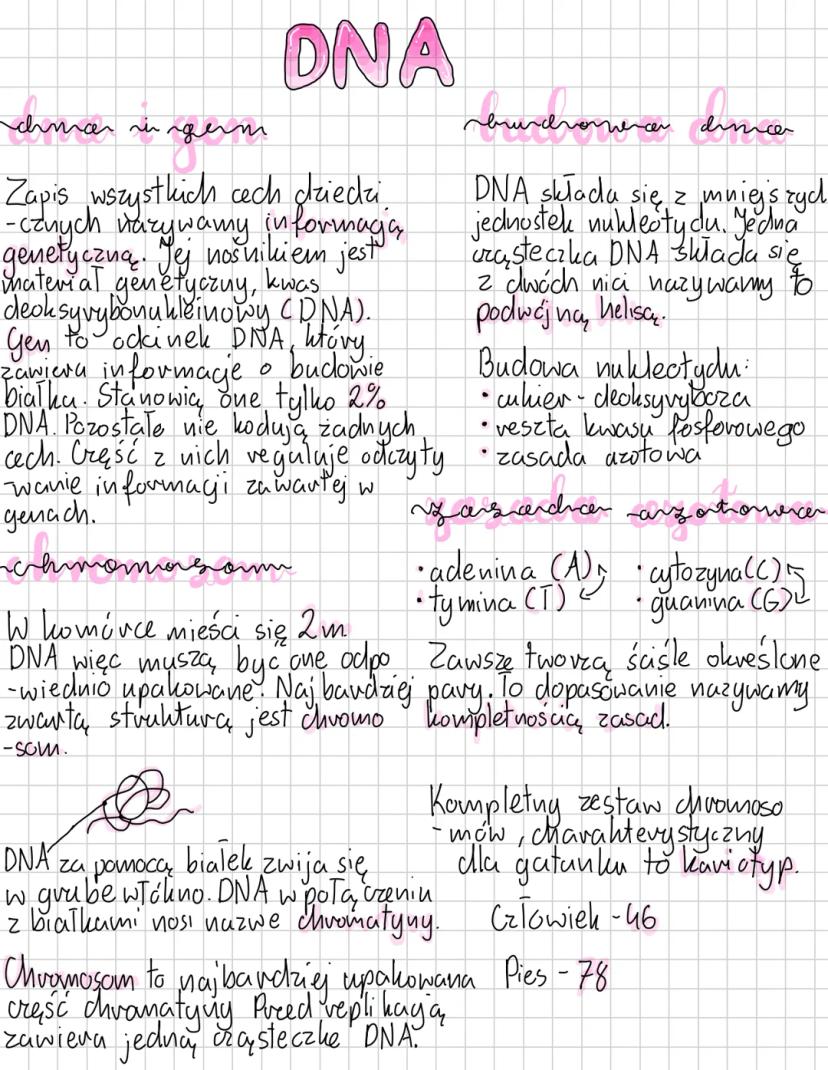 DNA
dna i gen
Zapis wszystkich cech dziedzi
-cznych nazywamy informacją
genetyczną. Jej nośnikiem jest
materiał genetyczny, kwas
deoksyrybonukleinowy (DNA).
Gen to odcinek DNA, który
zawiera informacje o budowie
białka. Stanowią one tylko 2%
DNA. Pozostałe nie kodują żadnych
cech. Część z nich reguluje odczyty
wanie informacji zawartej w
genach.
chromosom
W komórce mieści się 2m
DNA więc muszą być one odpo
-wiednio upakowane. Najbardziej
zwartą strukturą jest chromo
-som.
DNA za pomocą białek zwija się
w grube włókno. DNA w połączeniu
z białkami nosi nazwe chromatyny.
Chromosom to najbardziej upakowana
część chromatyny Przed replikacją
zawiera jedną cząsteczke DNA.
budowa dna
DNA składa się z mniejszych
jednostek nukleotydu. Jedna
cząsteczka DNA składa się
z dwóch nici nazywamy to
podwójną helisą.
Budowa nukleotydu:
• cukier - deoksyryboza
• reszta kwasu fosforowego
• zasada azotowa
zasada azotowa
• adenina (A)
• tymina (T)
• cytozyna (C)
• guanina (G)
Zawsze tworzą ściśle określone
pary. To dopasowanie nazywamy
kompletnością zasad.
Kompletny zestaw chromoso
-mów, charakterystyczny
dla gatunku to kariotyp.
Człowiek - 46
Pies - 78